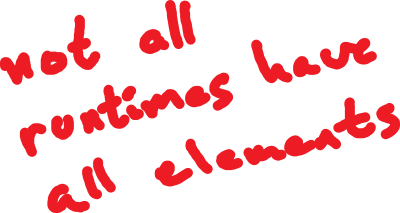 not all
runtimes have
all elements